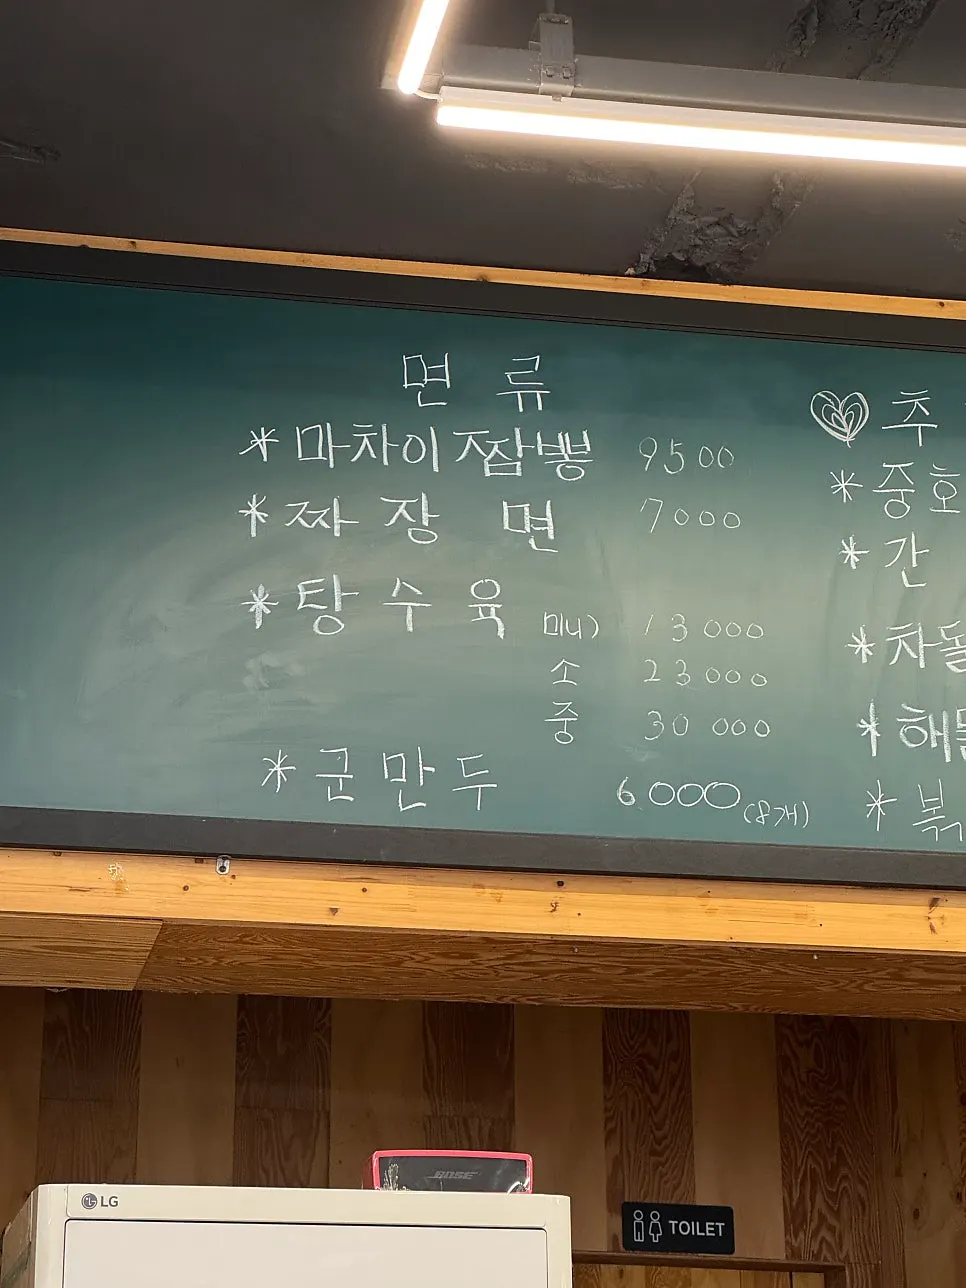 면류
* 마차이짬뽕 9500
* 짜장면 7000
* 탕수육 미니) 13000
소 23000
중 30 000
* 군만두 6.000 (8개)
추
* 중호
* 간
* 차돌
* 해물
* 볶
BOSE
LG
TOILET